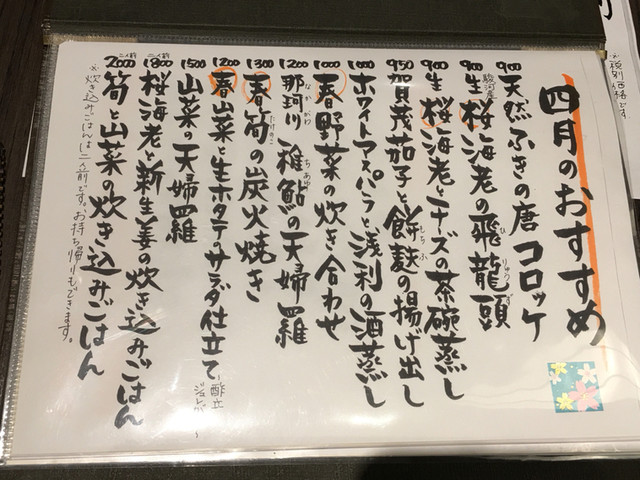 四月のおすすめ
900 天然ふきの唐コロッケ
900 駿河産 生桜海老の飛龍頭 ひりゅうず
900 生桜海老とチーズの茶碗蒸し
950 賀茂茄子と餅麩の揚げ出し もちふ
1000 ホワイトアスパラと浅利の酒蒸し
1000 春野菜の炊き合わせ
1200 那珂川 稚鮎の天婦羅 なかがわ ちあゆ
1300 春筍の炭火焼き たけのこ
1200 春山菜と生ホタテのサラダ仕立て
1500 山菜の天婦羅
二人前 1800 桜海老と新生姜の炊き込みごはん
二人前 2000 筍と山菜の炊き込みごはん
※炊き込みごはんは二人前です。お持ち帰りもできます。
※税別価格です